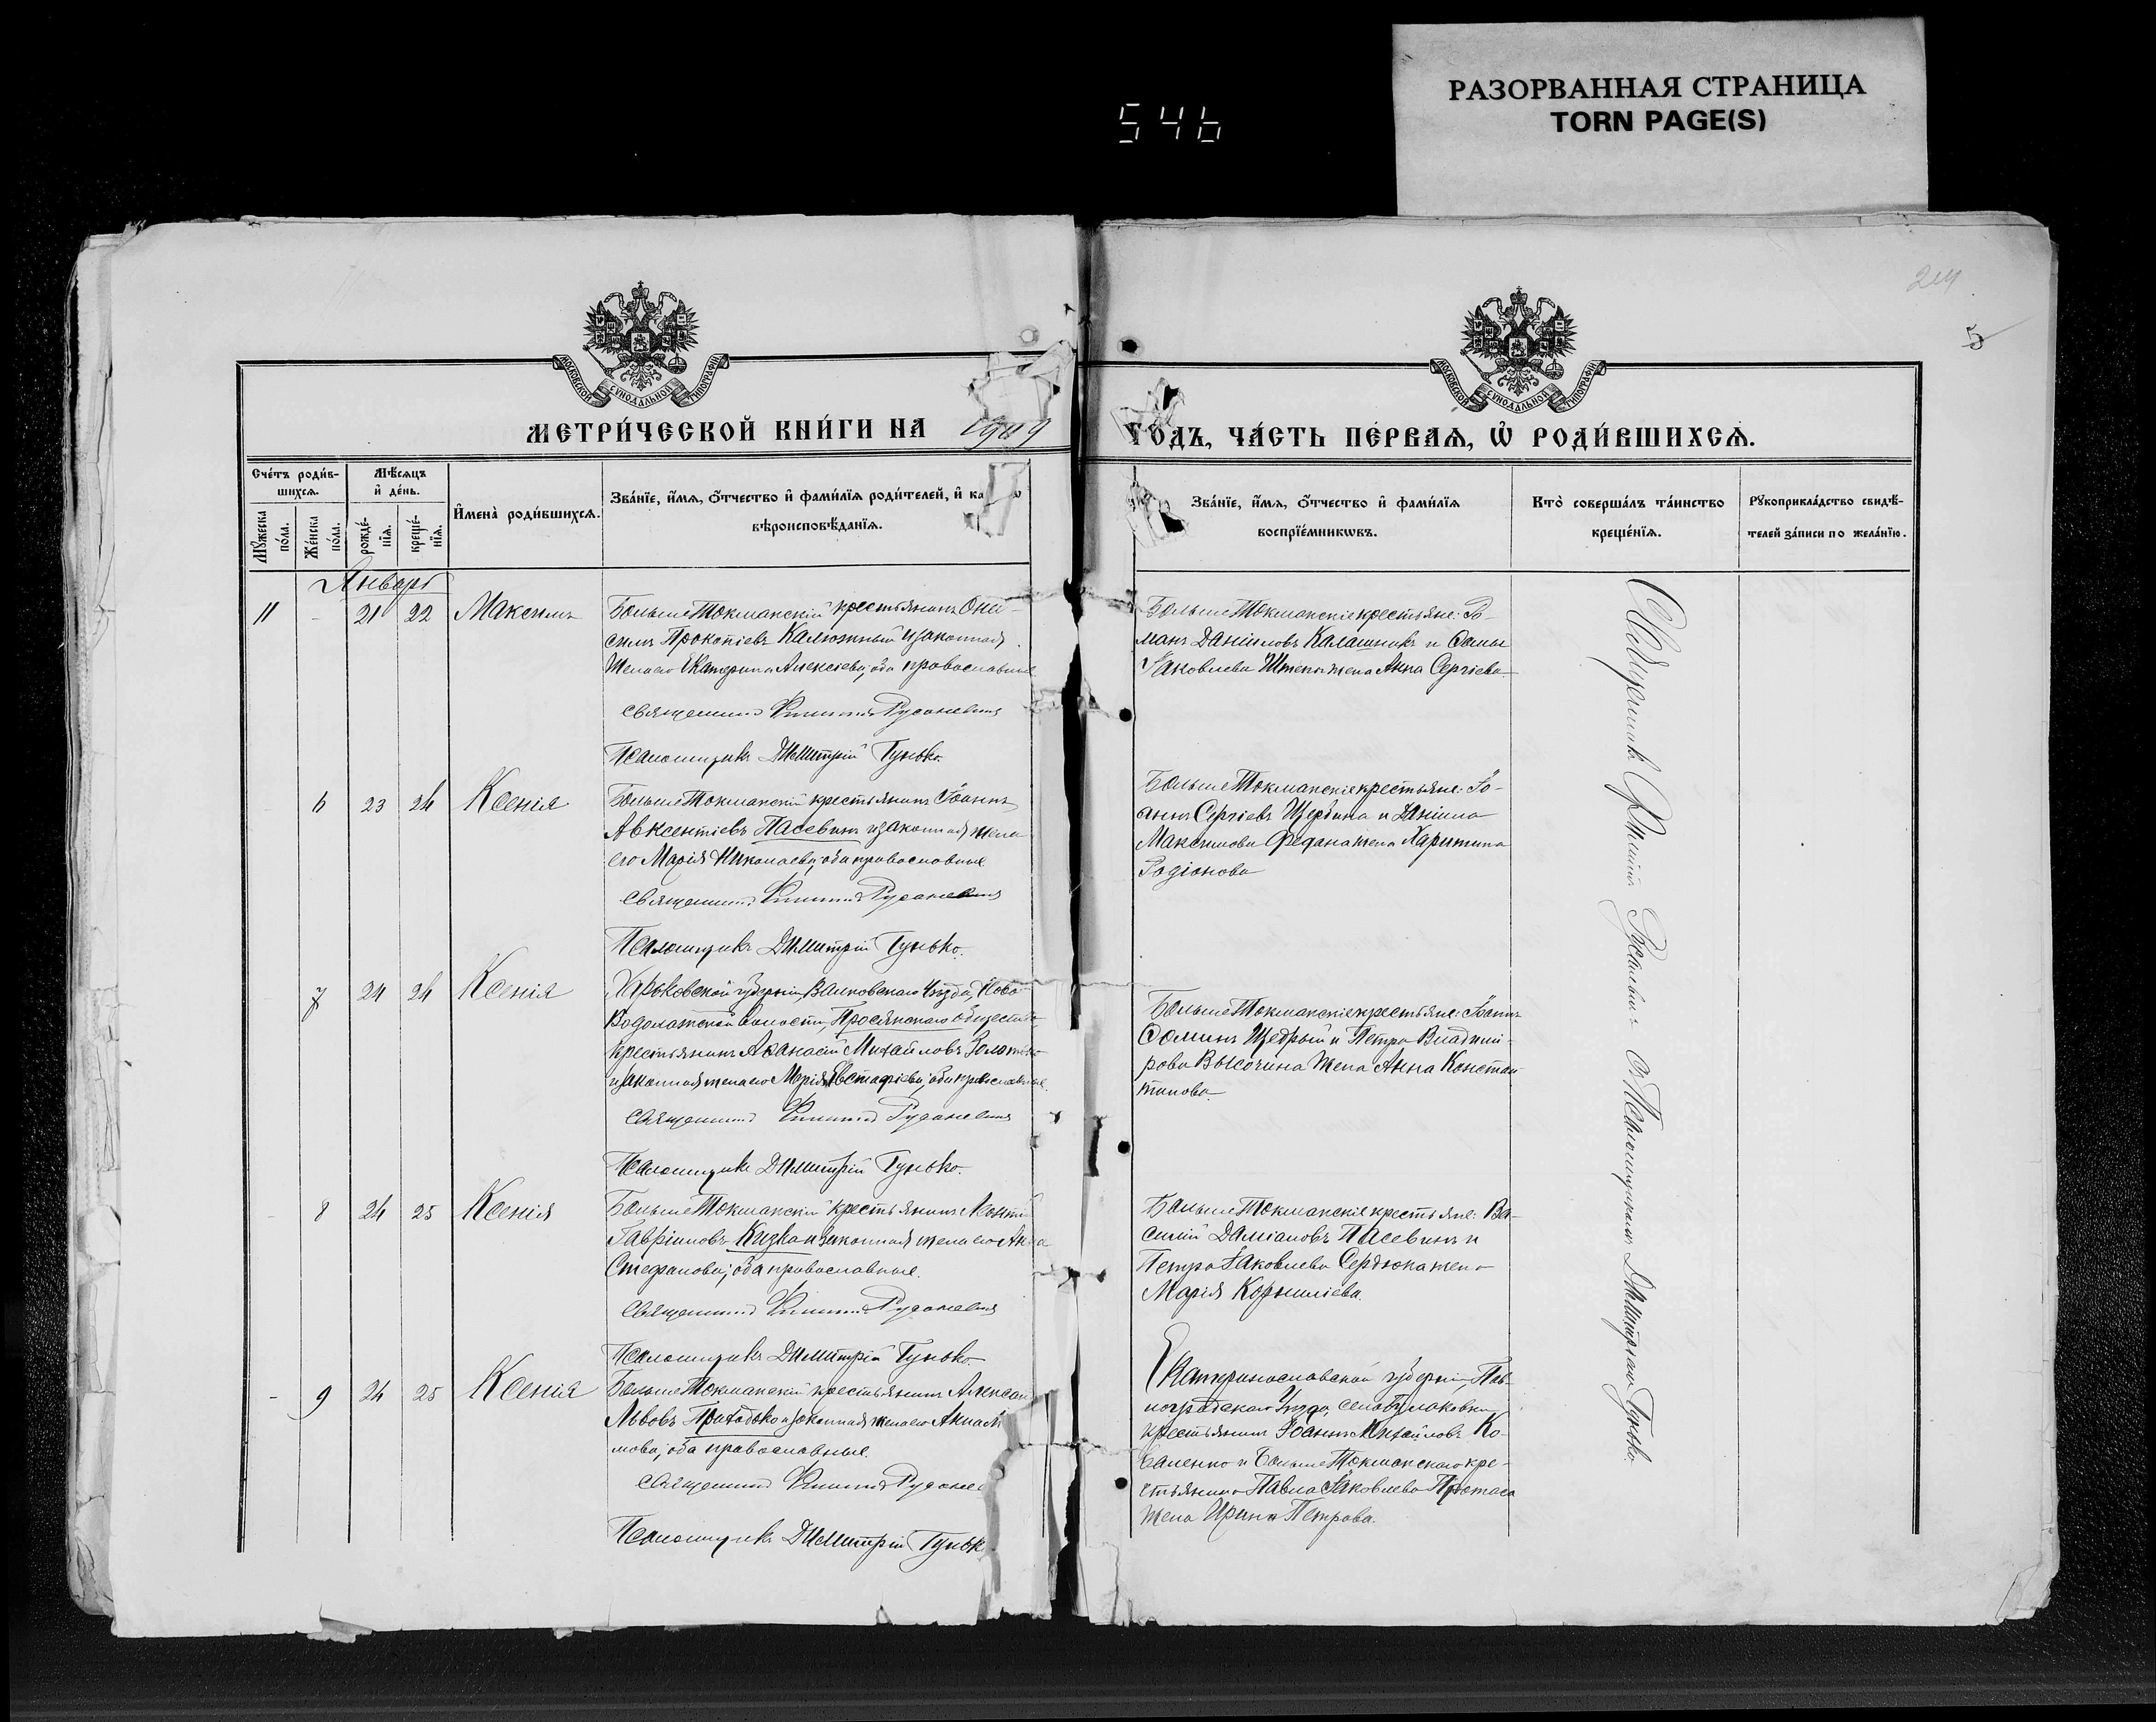 РАЗОРВАННАЯ СТРАНИЦА
TORN PAGE(S)
546
244
5
МОСКОВСКОЙ СѴНОДАЛЬНОЙ ТИПОГРАФІИ
МОСКОВСКОЙ СѴНОДАЛЬНОЙ ТИПОГРАФІИ
МЕТРИ́ЧЕСКОЙ КНИ́ГИ НА 1909
ГОДЪ, ЧА́СТЬ ПЕ́РВАѦ, Ѡ҆ РОДИ́ВШИХСѦ.
Сче́тъ роди́в-
шихсѧ.
Мѣ́сѧцъ
и҆ де́нь.
Мꙋ́жеска
по́ла.
Же́нска
по́ла.
рожде́-
нїѧ.
креще́-
нїѧ.
И҆мена̀ роди́вшихсѧ.
Зва́нїе, и҆́мѧ, ѻ҆́тчество и҆ фами́лїѧ роди́телей, и҆ ка
вѣроисповѣ́данїѧ.
Зва́нїе, и҆́мѧ, ѻ҆́тчество и҆ фами́лїѧ
воспрїе́мникѡвъ.
Кто̀ соверша́лъ та́инство
креще́нїѧ.
Рꙋкоприкла́дство свидѣ́-
телей за́писи по жела́нїю.
Январь
11 - 21 22 Максимъ
БольшеТокманскій крестьянинъ Они-
симъ Прокопіевъ Калюжный и законная
жена его Екатерина Алексіева, оба православные
Священникъ Филиппъ Русаневичъ
Псаломщикъ Димитрій Гунько.
БольшеТокманскіе крестьяне: Ро-
манъ Даніиловъ Калашникъ и Ѳомы
Іаковлева Штепы жена Анна Сергіева
6 23 24 Ксенія
БольшеТокманскій крестьянинъ Іоаннъ
Авксентіевъ Пасевинъ и законная жена
его Марія Николаева, оба православные
Священникъ Филиппъ Русаневичъ
Псаломщикъ Димитрій Гунько.
БольшеТокманскіе крестьяне: Іо-
аннъ Сергіевъ Щербина и Даніила
Максимова Федана жена Харитина
Родіонова
7 24 24 Ксенія
Харьковской губерніи, Валковскаго Уѣзда, Ново-
Водолажской волости, Просянскаго общества
крестьянинъ Аѳанасій Михайловъ Золотько
и законная жена его Марія Евстафіева, оба православные.
Священникъ Филиппъ Русаневичъ
Псаломщикъ Димитрій Гунько.
БольшеТокманскіе крестьяне: Іоаннъ
Ѳоминъ Щедрый и Петра Владимі-
рова Высочина жена Анна Констан-
тинова.
- 8 24 25 Ксенія
БольшеТокманскій крестьянинъ Леонтій
Гавріиловъ Кизка и законная жена его Анна
Стефанова, оба православные.
Священникъ Филиппъ Русаневичъ
Псаломщикъ Димитрій Гунько.
БольшеТокманскіе крестьяне: Ва-
силій Даміановъ Пасевинъ и
Петра Іаковлева Сердюка жена
Марія Корниліева.
- 9 24 25 Ксенія
БольшеТокманскій крестьянинъ Алексан
Львовъ Приходько и законная жена его Акилина
мова, оба православные.
Священникъ Филиппъ Русане
Псаломщикъ Димитрій Гуньк
Екатеринославской губерніи, Пав-
лоградскаго Уѣзда, села Булаховки
крестьянинъ Іоаннъ Михайловъ Ко-
валенко и БольшеТокманскаго кре-
стьянина Павла Іаковлева Протаса
жена Ирина Петрова.
Священникъ Филиппъ Русаневичъ съ Псаломщикомъ Димитріемъ Гунько.